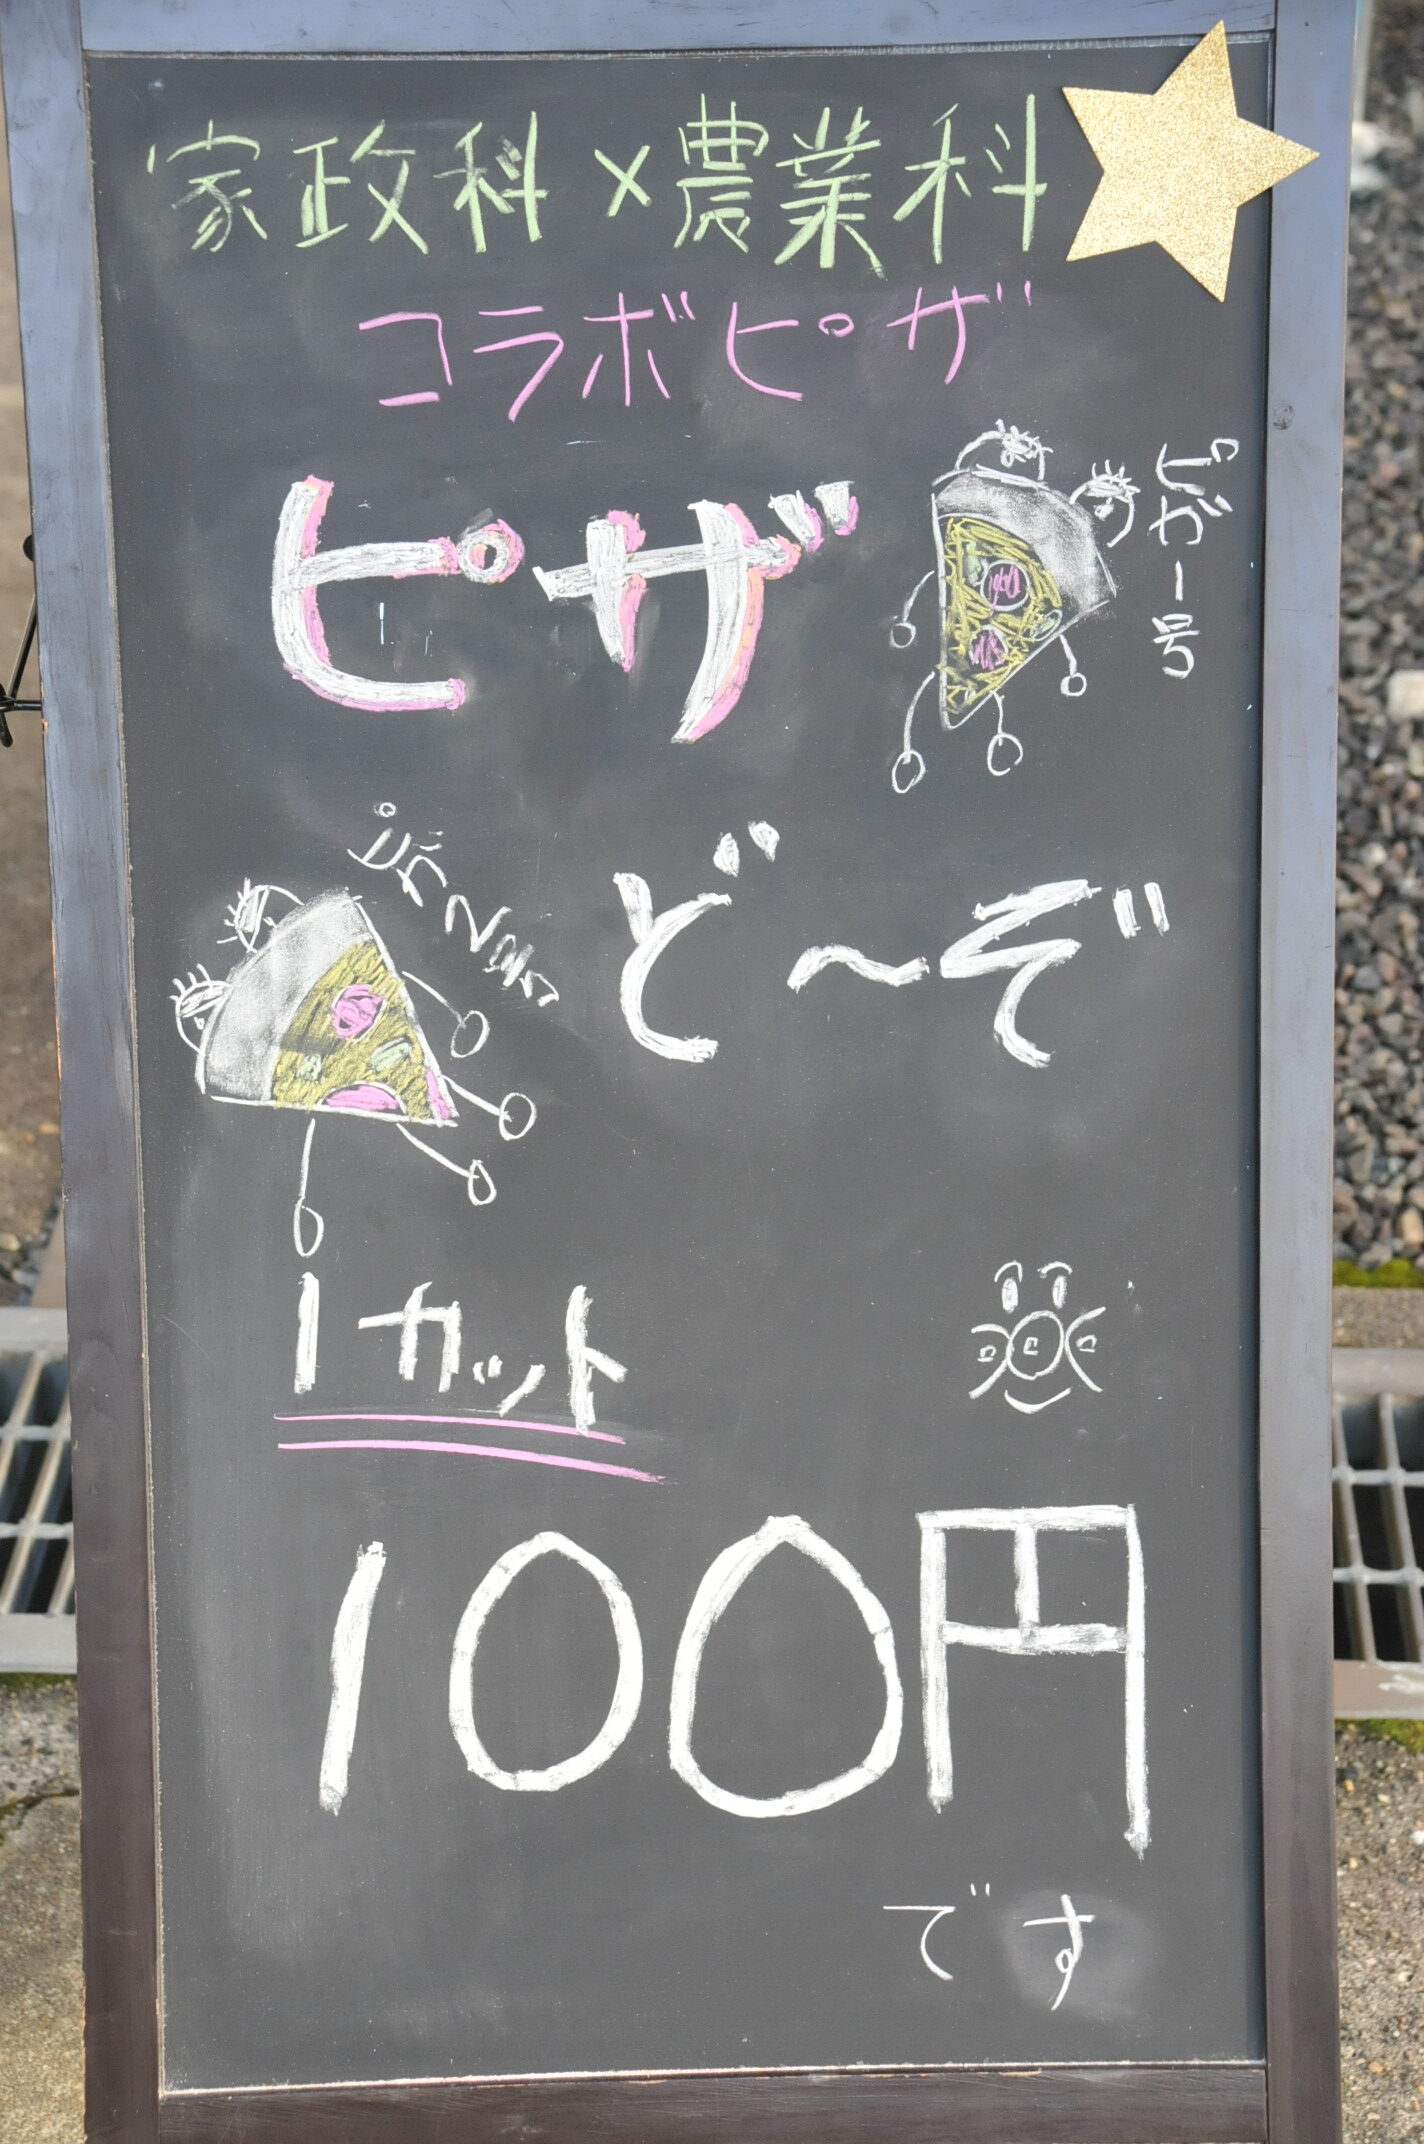 家政科×農業科
コラボピザ
ピザ
ピザ1号
ピザ2号
ど〜ぞ
1カット
100円
です